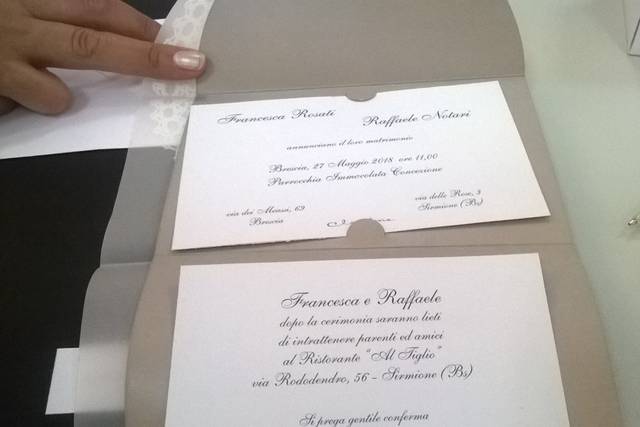 Francesca Rosati Raffaele Notari
annunciano il loro matrimonio
Brescia, 27 Maggio 2018 ore 11,00
Parrocchia Immacolata Concezione
via dei Meassi, 63 via delle Rose, 3
Brescia Sirmione (Bs)
Francesca e Raffaele
dopo la cerimonia saranno lieti
di intrattenere parenti ed amici
al Ristorante "Al Tiglio"
via Rododendro, 56 - Sirmione (Bs)
Si prega gentile conferma